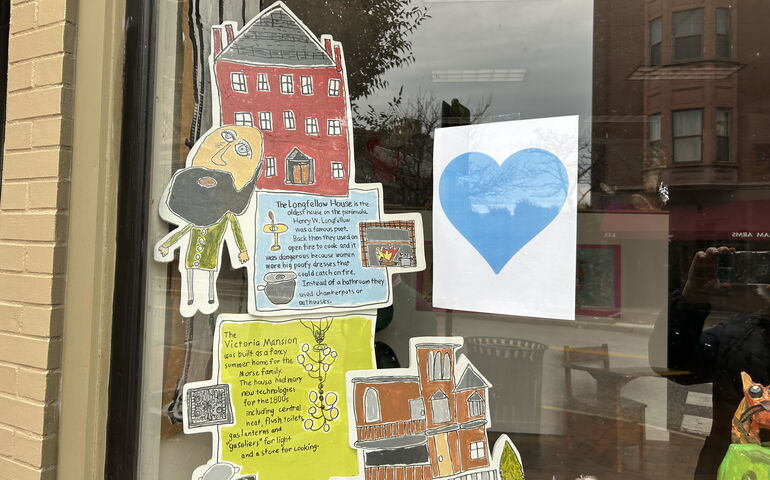 The Longfellow House is the
oldest house on the peninsula.
Henry W. Longfellow
was a famous poet.
Back then they used an
open fire to cook and it
was dangerous because women
wore big poofy dresses that
could catch on fire.
Instead of a bathroom they
used chamberpots or
outhouses.
The
Victoria Mansion
was built as a fancy
summer home for the
Morse family.
The house had many
new technologies
for the 1800s
including central
heat, flush toilets,
gas lanterns and
"gasoliers" for light
and a stove for cooking.